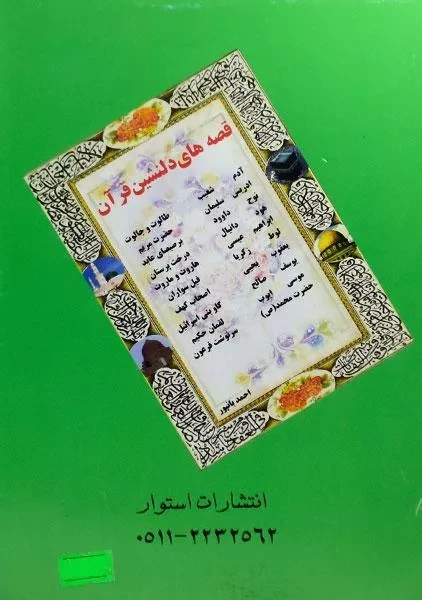 قصه های دلنشین قرآن
آدم
ادریس
نوح
هود
ابراهیم
لوط
یعقوب
یوسف
موسی
حضرت محمد(ص)
شعیب
سلیمان
داوود
دانیال
عیسی
زکریا
یحیی
صالح
ایوب
طالوت و جالوت
حضرت مریم
برصیصای عابد
درخت پرستان
هاروت و ماروت
فیل سواران
اصحاب کهف
گاو بنی اسرائیل
لقمان حکیم
سرنوشت فرعون
احمد بانپور
انتشارات استوار
۰۵۱۱-۲۲۳۲۵۶۲